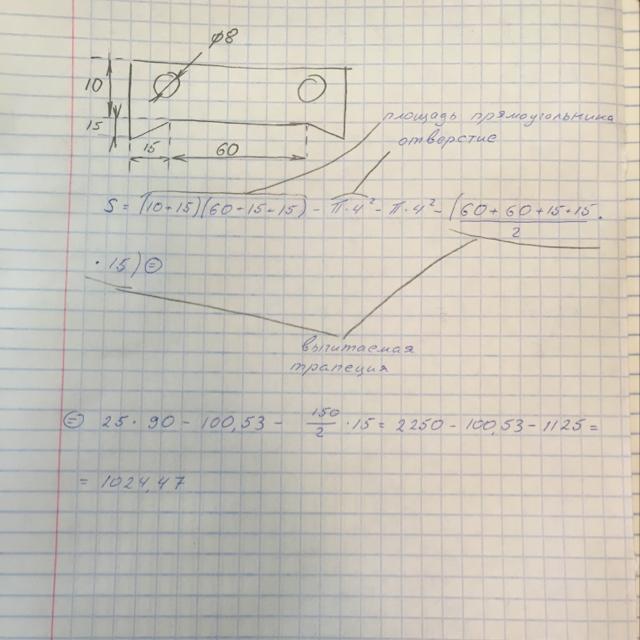 ø8
10
15
15
60
площадь прямоугольника
отверстие
S = (10+15)(60+15+15) - π·4² - π·4² - (60+60+15+15 / 2 ·
· 15) =
вычитаемая
трапеция
= 25 · 90 - 100,53 - 150/2 · 15 = 2250 - 100,53 - 1125 =
= 1024,47